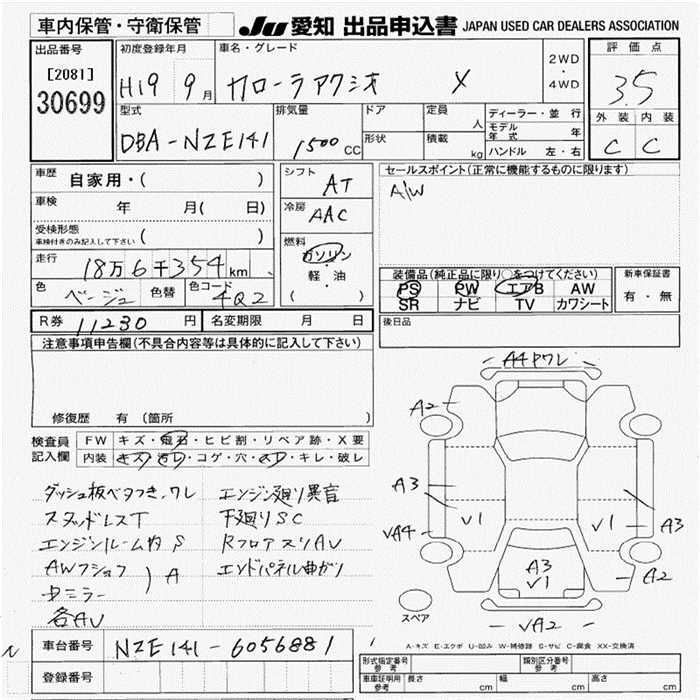 車内保管・守衛保管
JU 愛知 出品申込書 JAPAN USED CAR DEALERS ASSOCIATION
出品番号
[2081]
30699
初度登録年月
H19 9月
車名・グレード
カローラアクシオ X
2WD
・
4WD
評価点
3.5
外装 内装
C C
型式
DBA-NZE141
排気量
1500 CC
ドア
形状
定員 人
積載 kg
ディーラー・並行
モデル年式 年
ハンドル 左・右
車歴 自家用・( )
車検 年 月( 日)
受検形態
車検付きのみ記入して下さい ( )
走行
18万6千354km
色 ベージュ 色替 色コード 4Q2
シフト
AT
冷房
AAC
燃料
ガソリン
・
軽・油
( )
セールスポイント(正常に機能するものに限ります)
A/W
装備品(純正品に限り○をつけてください)
PS PW エアB AW
SR ナビ TV カワシート
新車保証書
有・無
R券 11230 円 名変期限 月 日
後日品
注意事項申告欄(不具合内容等は具体的に記入して下さい)
修復歴 有(箇所
検査員
記入欄
FW キズ・飛石・ヒビ割・リペア跡・X要
内装 キズ・汚レ・コゲ・穴・スレ・キレ・破レ
ダッシュ板ベタつき.ワレ
スタッドレスT
エンジンルーム内S
AWフショク
ドミラー
) A
各AU
エンジン廻り異音
下廻りSC
RフロアスリAU
エンドパネル曲ガリ
A4 Pワレ
A2
A3
VA4
V1
V1
A3
A3
V1
A2
VA2
スペア
A-キズ E-エクボ U-凹み W-補修跡 S-サビ C-腐食 XX-交換済
車台番号 NZE141-6056881
登録番号
形式指定番号
参考
類別区分番号
参考
車庫証明用
参考
長さ cm 幅 cm 高さ cm